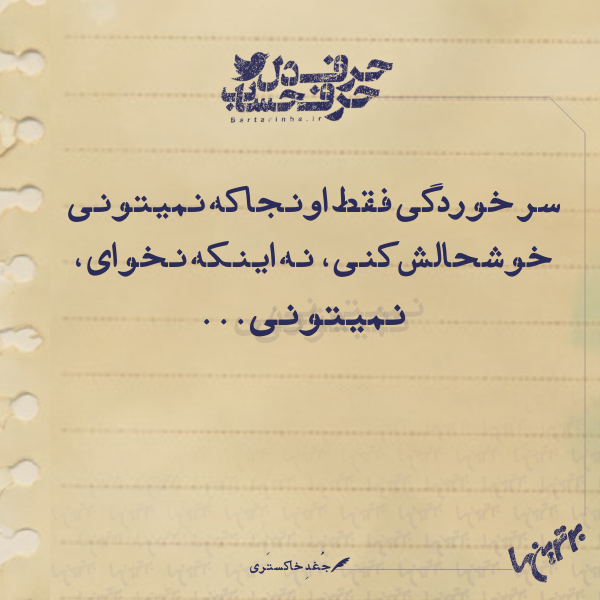 حرف دل
حرف حساب
Bartarinha.ir
سرخوردگی فقط اونجاکه نمیتونی
خوشحالش کنی، نه اینکه نخوای،
نمیتونی...
جُغدِ خاکستَری
برترین‌ها